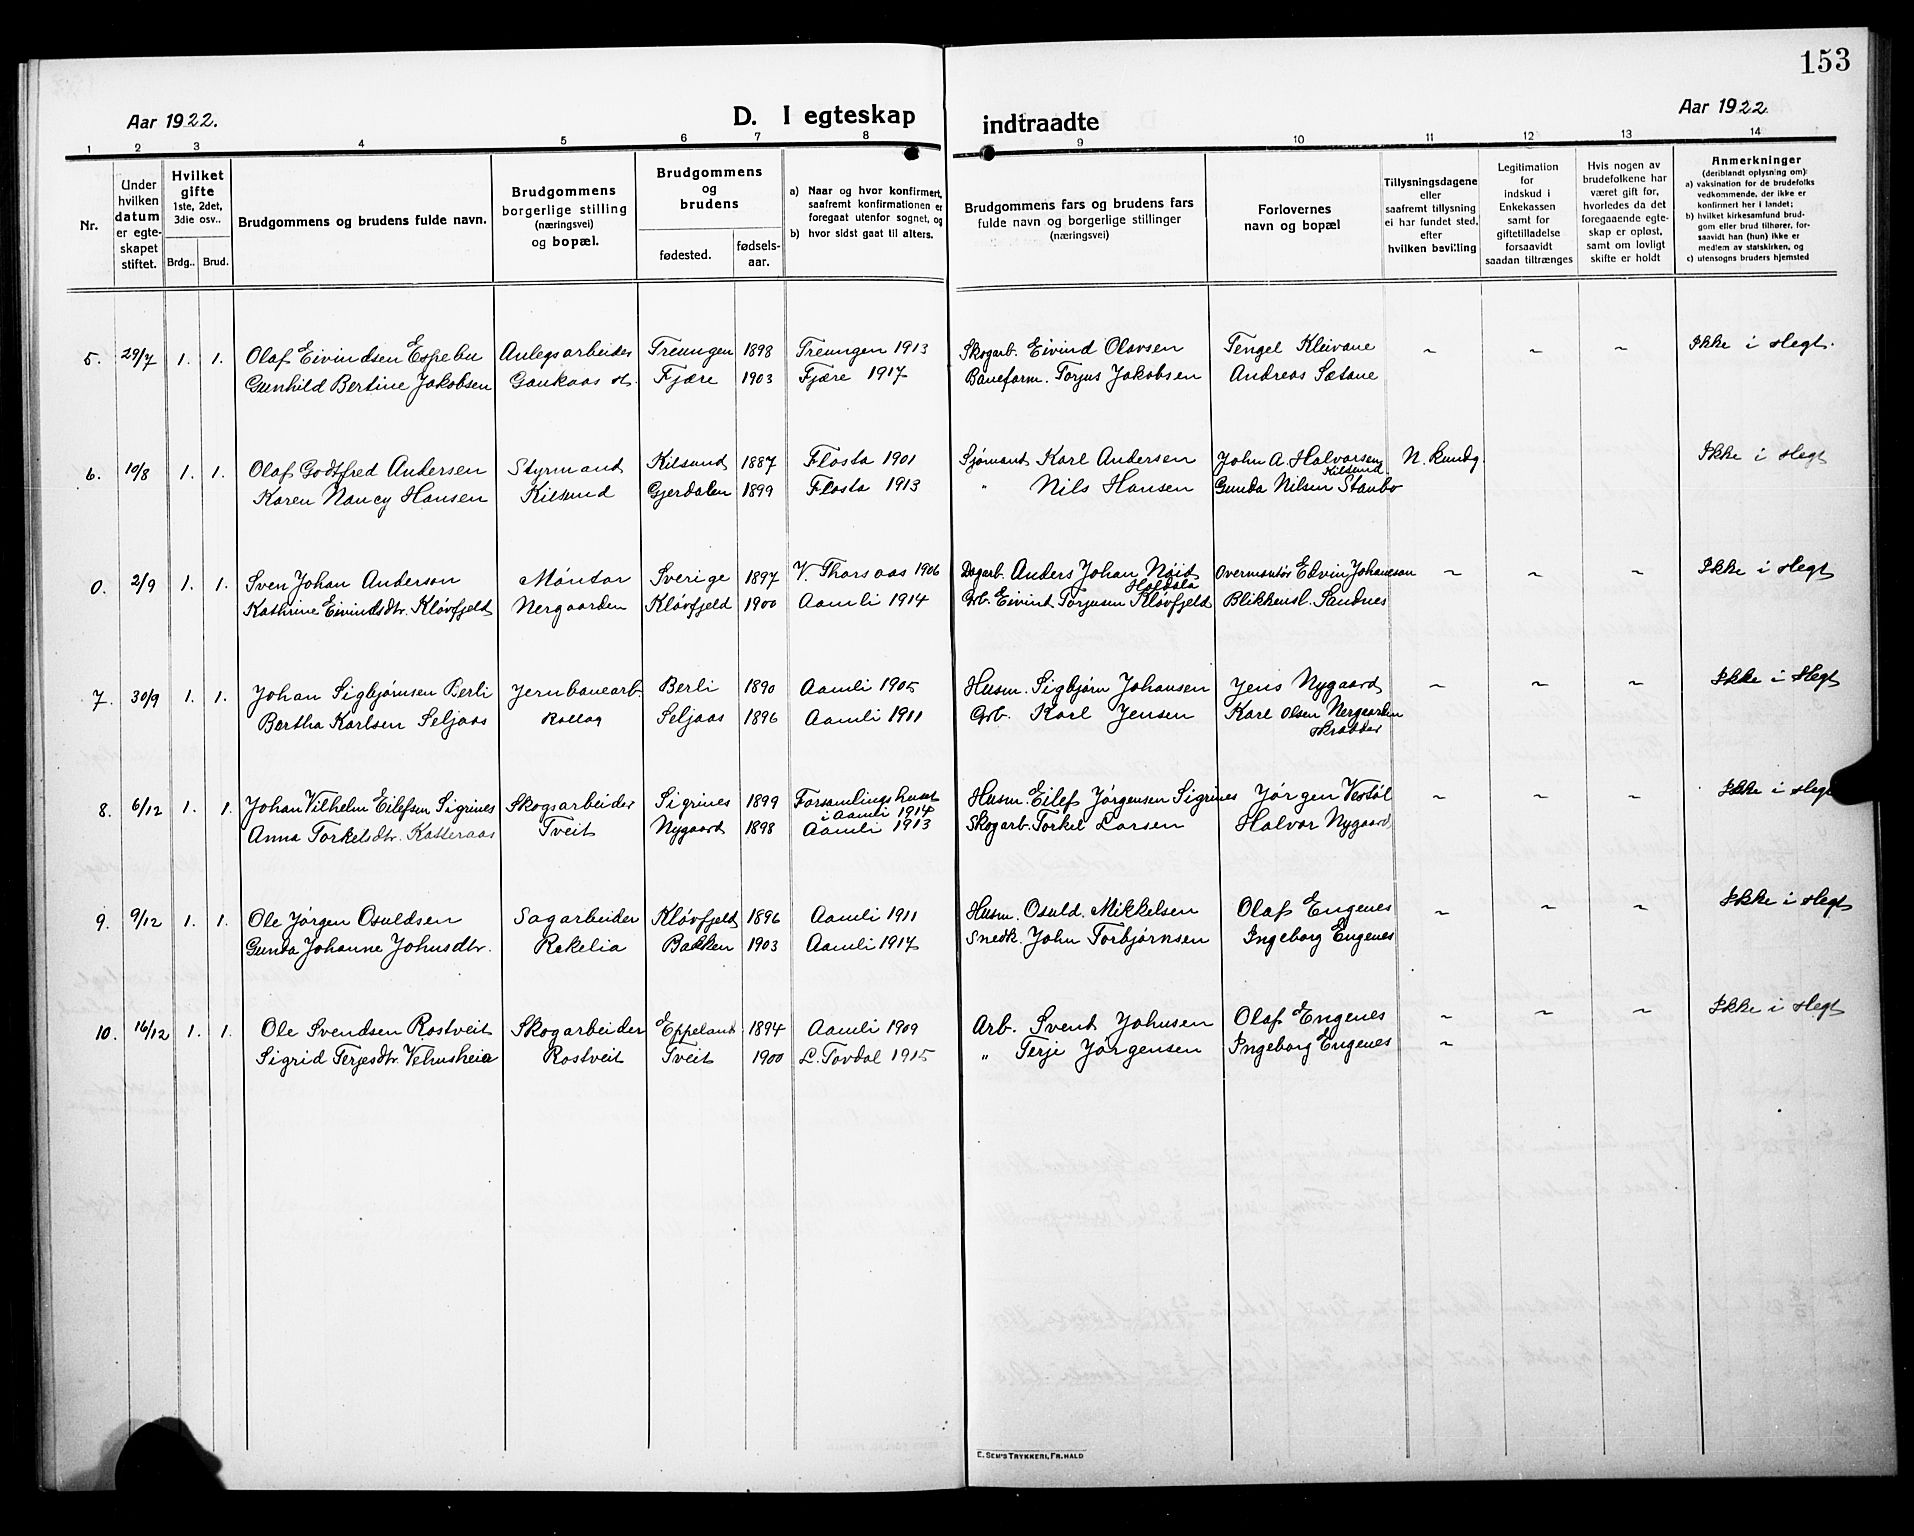 153
Aar 1922.
D. I egteskap indtraadte
Aar 1922
1 2 3 4 5 6 7 8 9 10 11 12 13 14
Nr.
Under hvilken datum er egteskapet stiftet.
Hvilket gifte 1ste, 2det, 3die osv..
Brdg.. Brud.
Brudgommens og brudens fulde navn.
Brudgommens borgerlige stilling (næringsvei) og bopæl.
Brudgommens og brudens
fødested.
fødselsaar.
a) Naar og hvor konfirmert, saafremt konfirmationen er foregaat utenfor sognet, og
b) hvor sidst gaat til alters.
Brudgommens fars og brudens fars fulde navn og borgerlige stillinger (næringsvei)
Forlovernes navn og bopæl
Tillysningsdagene eller saafremt tillysning ei har fundet sted, efter hvilken bevilling
Legitimation for indskud i Enkekassen samt for giftetilladelse forsaavidt saadan tiltrænges
Hvis nogen av brudefolkene har været gift før, hvorledes da det foregaaende egteskap er opløst, samt om lovligt skifte er holdt
Anmerkninger (deriblandt oplysning om):
a) vaksination for de brudefolks vedkommende, der ikke er konfirmert her i landet;
b) hvilket kirkesamfund brudgom eller brud tilhører, forsaavidt han (hun) ikke er medlem av statskirken, og
c) utensogns bruders hjemsted
5. 29/7 1. 1. Olaf Eivindsen Espebu Anlegsarbeider Treungen 1898 Treungen 1913 Skogarb. Eivind Olavsen Tengel Kleivane ~ ~ ~ Ikke i slegt.
Gunhild Bertine Jakobsen Gaukaas st. Fjære 1903 Fjære 1917 Baneform. Torjus Jakobsen Andreas Sætane
6. 10/8 1. 1. Olaf Godtfred Andersen Styrmand Kilsund 1887 Flosta 1901 Sjømand Karl Andersen John A. Halvorsen Kilsund N. kundg. Ikke i slegt
Karen Nancy Hansen Kilsund Gjerdalen 1899 Flosta 1913 " Nils Hansen Gunda Nilsen Staubo
0. 2/9 1. 1. Sven Johan Anderson Montør Sverige 1897 V. Thorsaas 1906 Dagarb. Anders Johan Nöid Haldala Overmontør Edvin Johanson ~ ~ ~ Ikke i slegt
Kathrine Eivindsdtr. Kløvfjeld Nergaarden Kløvfjeld 1900 Aamli 1914 Grb. Eivind Torjusen Kløvfjeld Blikkensl. Sandnes
7. 30/9 1. 1. Johan Sigbjørnsen Berli Jernbanearb. Berli 1890 Aamli 1905 Husm. Sigbjørn Johansen Jens Nygaard ~ ~ ~ Ikke i slegt
Bertha Karlsen Seljaas Rollag Seljaas 1896 Aamli 1911 Grb. Karl Jensen Karl Olsen Nergaarden skrædder
8. 6/12 1. 1. Johan Vilhelm Eilefsen Sigrines Skogsarbeider Sigrines 1899 Forsamlingshuset i Aamli 1914 Husm. Eilef Jørgensen Sigrines Jørgen Vestøl ~ ~ ~ Ikke i slegt
Anna Torkelsdtr. Katteraas Tveit Nygaard 1898 Aamli 1913 Skogarb. Torkel Larsen Halvor Nygaard
9. 9/12 1. 1. Ole Jørgen Osuldsen Sagarbeider Kløvfjeld 1896 Aamli 1911 Husm. Osuld. Mikkelsen Olaf Engenes ~ ~ ~ Ikke i slegt
Gunda Johanne Johnsdtr. Rekelia Bakken 1903 Aamli 1917 Snedk. John Torbjørnsen Ingeborg Engenes
10. 16/12 1. 1. Ole Svendsen Rostveit Skogarbeider Eppeland 1894 Aamli 1909 Arb. Svend Johnsen Olaf Engenes ~ ~ ~ Ikke i slegt
Sigrid Terjesdtr. Velmsheia Rostveit Tveit 1900 L. Tovdal 1915 " Terje Jørgensen Ingeborg Engenes ~
E. SEM'S TRYKKERI, FR.HALD